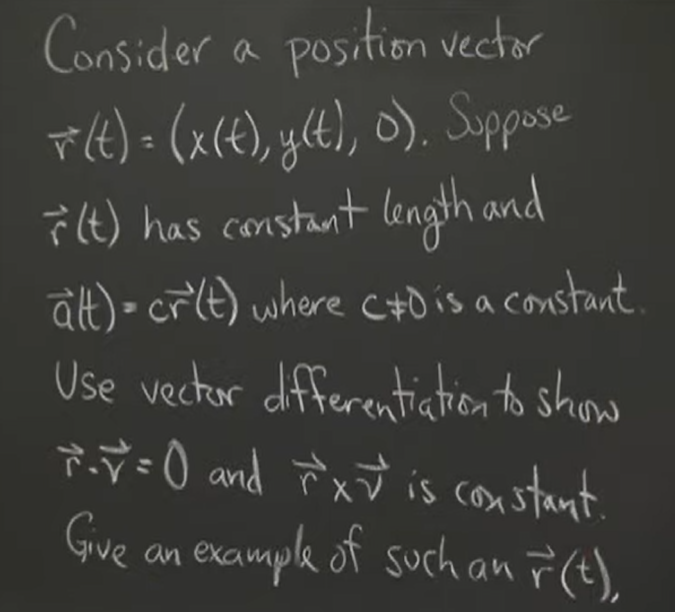 Consider a position vector
r⃗(t) = (x(t), y(t), 0). Suppose
r⃗(t) has constant length and
a⃗(t) = cr⃗(t) where c≠0 is a constant.
Use vector differentiation to show
r⃗·v⃗ = 0 and r⃗×v⃗ is constant.
Give an example of such an r⃗(t).